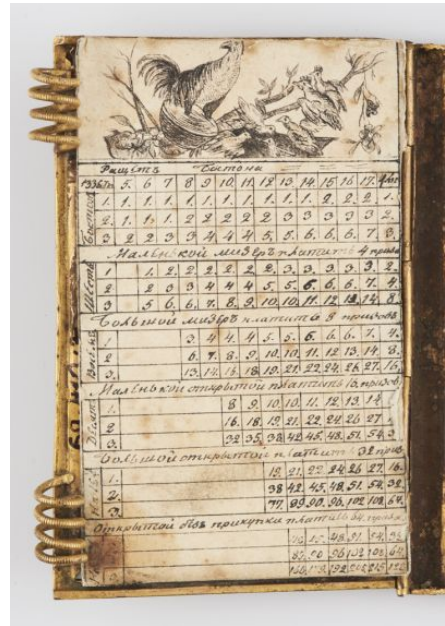 Расчетъ Бостона
5. 6 7 8 9 10. 11. 12 13. 14. 15. 16 17.
1. 1. 1. 1. 1. 1. 1. 1. 1. 1. 1. 2. 2. 2 1.
2. 1. 1. 1. 2 2 2 2 2 3 3 3 3 3 2.
3 2 2 3 3 4 4 4 5. 5. 6. 6. 6. 7 3.
Маленькой мизеръ платитъ 4 приза
1 1. 2. 2. 2. 2. 2. 2. 3. 3. 3. 3. 3. 2.
2 2 3 3 4 4 4 5. 5. 6 6. 6. 7. 4.
3 5 6 6. 7. 8. 9. 10. 10. 11. 12 13. 14 8.
Большой мизеръ платитъ 8 призовъ
1 3. 4 4. 4 5. 5. 6. 6. 6. 7. 4.
2 6. 7. 8. 9. 10. 10. 11. 12. 13. 14. 8.
3 13. 14. 16. 18 19. 21. 22. 24. 26. 27. 16.
Маленькой открытой платитъ 16. призов.
1. 8 9. 10. 10. 11. 12. 13. 14
2. 16. 18. 19. 21. 22 24. 26 27
3. 32 35. 38 42. 45. 48. 51. 54.
Большой открытой платитъ 32 приз
1. 19. 21. 22 24 26 27. 16.
2. 38 42. 45. 48. 51. 54. 32
3. 77. 90. 96. 102 108. 64.
Открытой безъ прикупки платитъ 64. приза
48. 51. 54. 32
90 96 102 108. 64
192